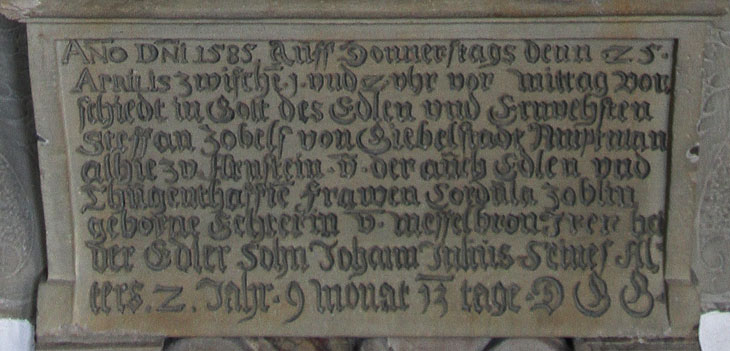 ANO DNI 1585 Auff Donnerstags denn 25.
APRILIS zwische .1. vnd 2 vhr vor mittag vor
schiedt in Gott des Edlen vnd Ernvehsten
Steffan Zobels von Giebelstadt Amptman
alhie zv Arnstein. v̄. der auch Edlen vnd
Thugenthaffte Frawen Cordula Zoblin
geborne Echterin v. Messelbron. Irer bei
der Edler Sohn Johann Julius. Seines Al
ters. 2. Jahr. 9 monat 13 tage. D G G.